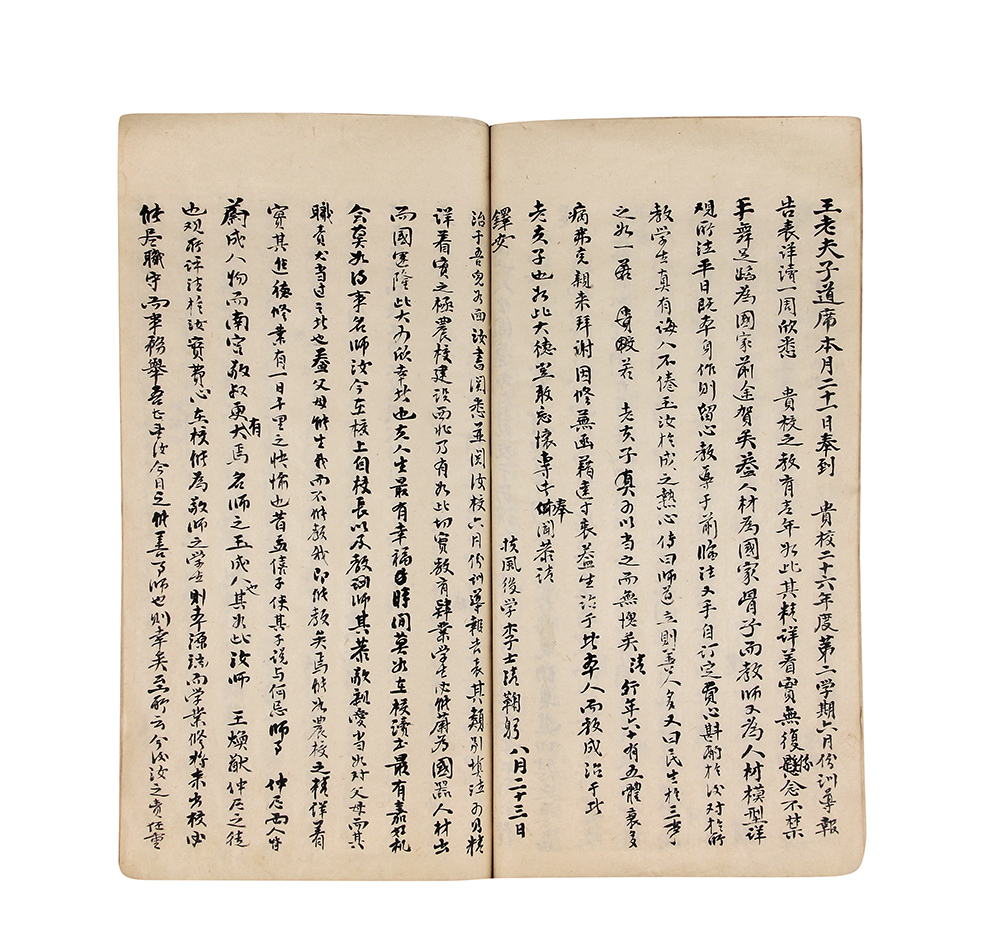 王老夫子道席本月二十一日奉到　貴校二十六年度第二學期六月份訓導報
告表详读一周欣悉　貴校之教育青年如此其精详着實無復懸念不禁
手舞足蹈為國家前途賀矣蓋人材為國家骨子而教师又為人材模型详
观所注平日既率身作則留心教導于前臨注又手自訂定費心斟酌於後对於所
教学生真有诲人不倦玉汝於成之熱心传曰师道立則善人多又曰民生於三事
之如一若　貴畋若　老夫子真可以当之而無愧矣　清行年六十有五體衰多
病弗克親来拜谢因修蕪函藉達寸衷益生治于此率人而教成治于此
老夫子也如此大德豈敢忘懷專此奉聞恭请
鐸安
扶風後学李士清鞠躬　八月二十三日
治于吾兒如面汝書阅悉並阅汝校六月份训導報告表其類别填注可乃精
详着實之極農校建设西北乃有如此切實教育肄業学生必能蔚為國器人材出
而國運隆此大可欣幸者也夫人生最有幸福時間莫如在校读书最有嘉好机
会莫如得事名师汝今在校上自校長以及教训师其恭敬親愛当如对父母而其
職責尤当过之者也蓋父母能生我而不能教我即能教矣焉能如農校之精详着
實其進德修業有一日千里之快愉也昔孟僖子使其子说与何忌师事仲尼而人皆
蔚成人物而南宫敬叔更大焉有名师之玉成人也其如此汝师　王燠猷仲尼之徒
也观所详注於汝實費心在校能為敬师之学生則率源洁而学業修将来出校必
能尽職守而事務舉吾亡乎汝今日之能善事师也則幸矣至所云今後汝之责任重